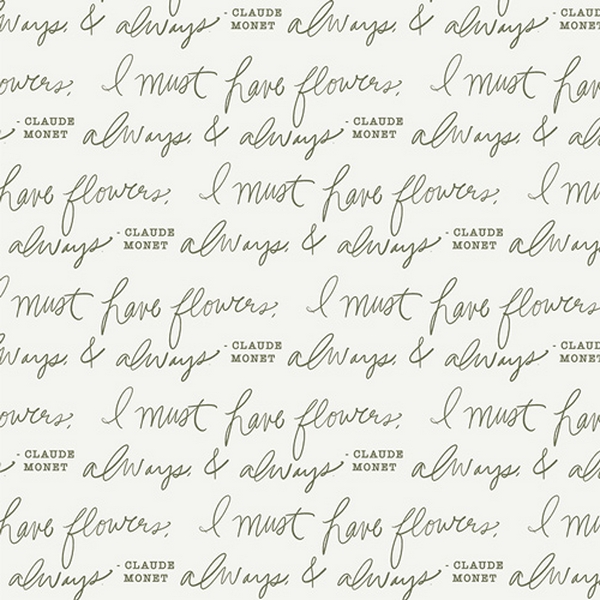 lways, & always - CLAUDE MONET always, & always - CLAUDE MONET
owers, I must have flowers, I must have
- CLAUDE MONET always, & always - CLAUDE MONET always, & al
have flowers, I must have flowers, I mu
always - CLAUDE MONET always, & always - CLAUDE MONET always
I must have flowers, I must have flowers
lways, & always - CLAUDE MONET always, & always - CLAUDE MONET
owers, I must have flowers, I must have
- CLAUDE MONET always, & always - CLAUDE MONET always, & al
have flowers, I must have flowers, I mu
always - CLAUDE MONET always, & always - CLAUDE MONET always